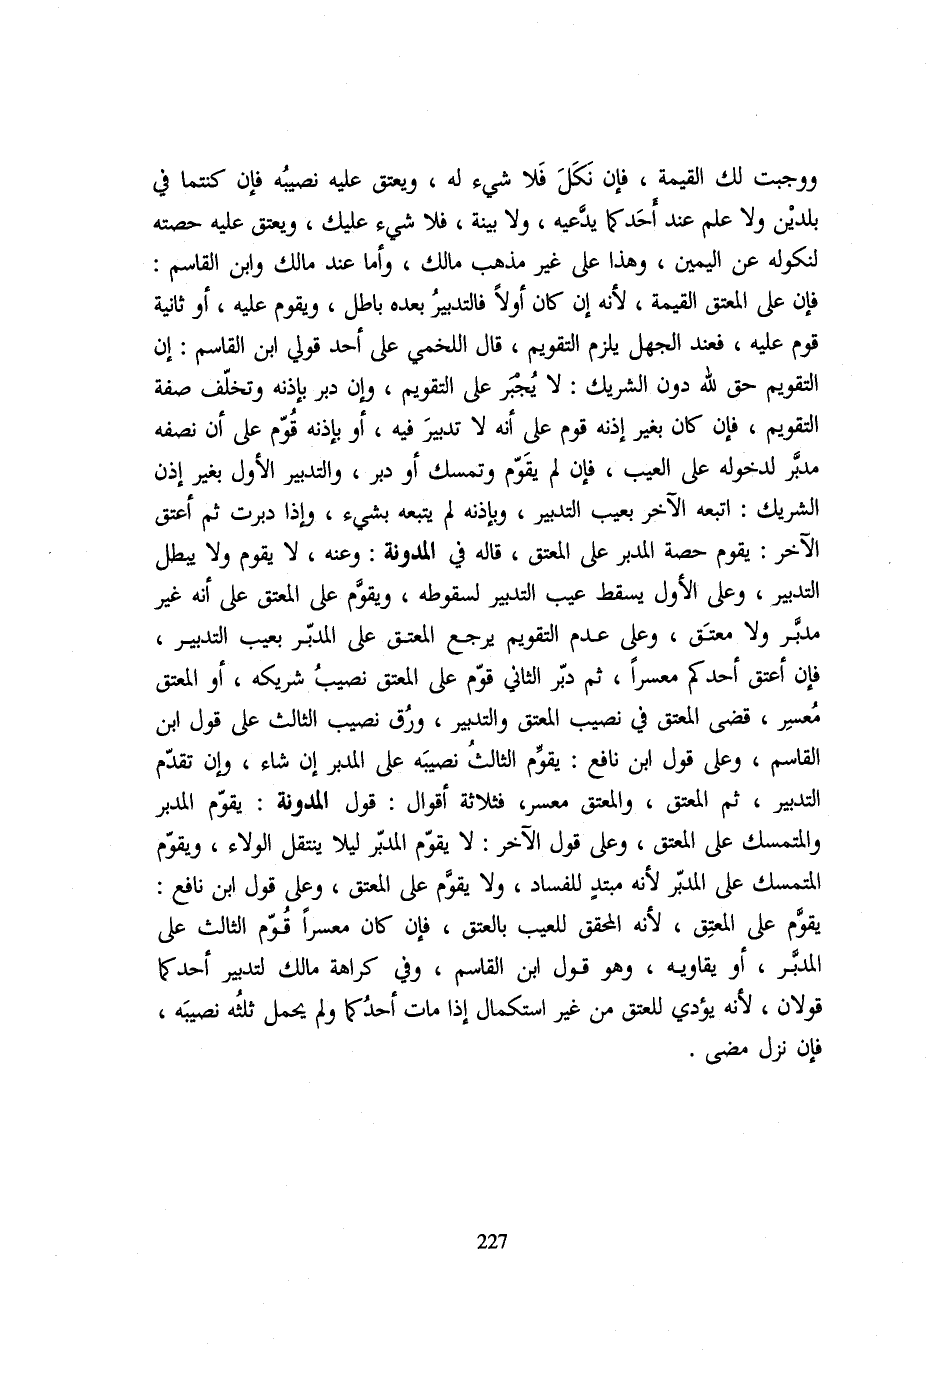 ووجبت لك القيمة ، فإن نَكَلَ فَلا شيء له ، ويعتق عليه نصيبُه فإن كنتما في
بلديْن ولا علم عند أَحَدكما يدَّعيه ، ولا بينة ، فلا شيء عليك ، ويعتق عليه حصته
لنكوله عن اليمين ، وهذا على غير مذهب مالك ، وأما عند مالك وابن القاسم :
فإن على المعتق القيمة ، لأنه إن كان أولاً فالتدبيرُ بعده باطل ، ويقوم عليه ، أو ثانية
قوم عليه ، فعند الجهل يلزم التقويم ، قال اللخمي على أحد قولي ابن القاسم : إن
التقويم حق لله دون الشريك : لا يُجْبَر على التقويم ، وإن دبر بإذنه وتخلّف صفة
التقويم ، فإن كان بغير إذنه قوم على أنه لا تدبيرَ فيه ، أو بإذنه قُوّم على أن نصفه
مدبَّر لدخوله على العيب ، فإن لم يقَوّم وتمسك أو دبر ، والتدبير الأول بغير إذن
الشريك : اتبعه الآخر بعيب التدبير ، وبإذنه لم يتبعه بشيء ، وإذا دبرت ثم أعتق
الآخر : يقوم حصة المدبر على المعتق ، قاله في المدونة : وعنه ، لا يقوم ولا يبطل
التدبير ، وعلى الأول يسقط عيب التدبير لسقوطه ، ويقوَّم على المعتق على أنه غير
مدبَّر ولا معتَق ، وعلى عدم التقويم يرجع المعتق على المدبّر بعيب التدبير ،
فإن أعتق أحدكم معسراً ، ثم دبّر الثاني قوّم على المعتق نصيبُ شريكه ، أو المعتق
مُعسِر ، قضى المعتق في نصيب المعتق والتدبير ، ورُق نصيب الثالث على قول ابن
القاسم ، وعلى قول ابن نافع : يقوِّم الثالثُ نصيبَه على المدبر إن شاء ، وإن تقدّم
التدبير ، ثم المعتق ، والمعتق معسر، فثلاثة أقوال : قول المدونة : يقوّم المدبر
والمتمسك على المعتق ، وعلى قول الآخر : لا يقوّم المدبّر ليلا ينتقل الولاء ، ويقوّم
المتمسك على المدبّر لأنه مبتدٍ للفساد ، ولا يقوَّم على المعتق ، وعلى قول ابن نافع :
يقوَّم على المعتِق ، لأنه المحقق للعيب بالعتق ، فإن كان معسراً قُوّم الثالث على
المدبَّر ، أو يقاويه ، وهو قول ابن القاسم ، وفي كراهة مالك لتدبير أحدكما
قولان ، لأنه يؤدي للعتق من غير استكمال إذا مات أحدُكما ولم يحمل ثلثُه نصيبَه ،
فإن نزل مضى .
227